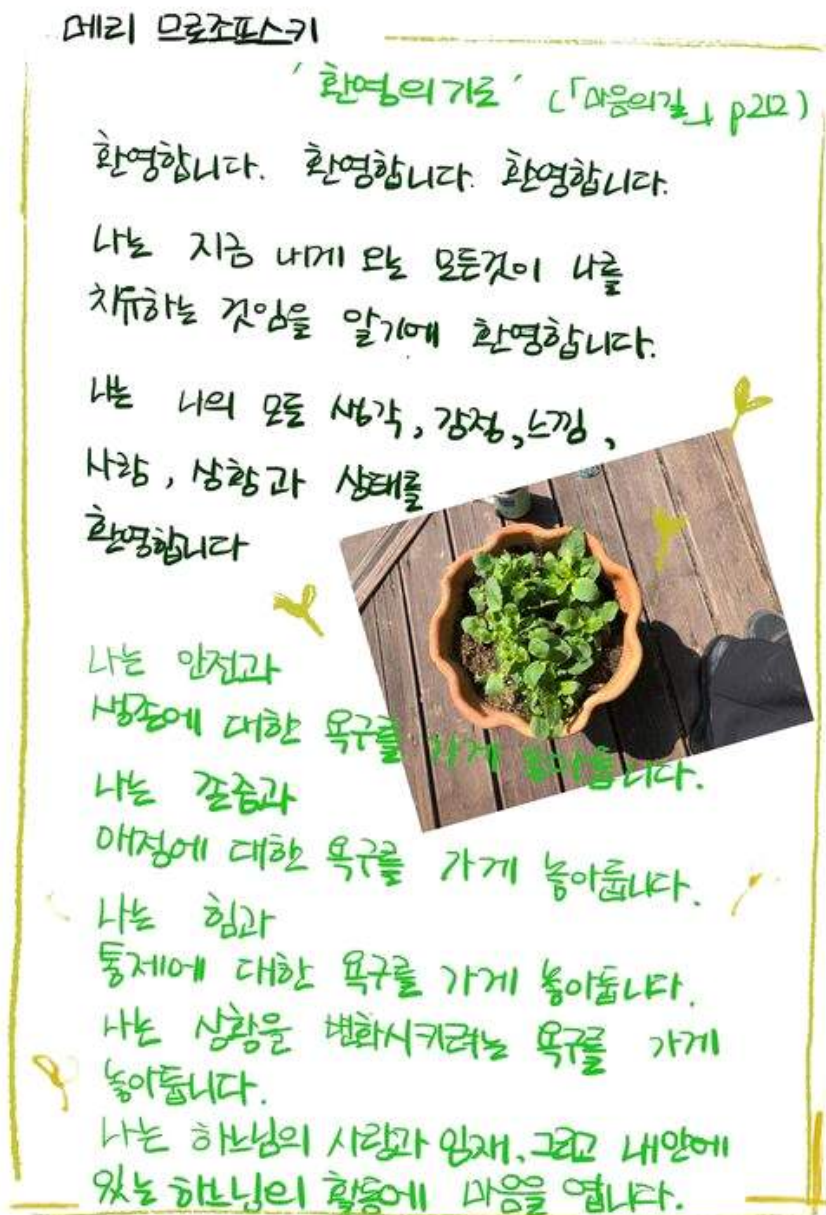 메리 므로조프스키
'환영의 기도' (「마음의길」 p212)
환영합니다. 환영합니다. 환영합니다.
나는 지금 내게 오는 모든것이 나를
치유하는 것임을 알기에 환영합니다.
나는 나의 모든 생각, 감정, 느낌,
사람, 상황과 상태를
환영합니다
나는 안전과
생존에 대한 욕구를 가게 놓아둡니다.
나는 존중과
애정에 대한 욕구를 가게 놓아둡니다.
나는 힘과
통제에 대한 욕구를 가게 놓아둡니다.
나는 상황을 변화시키려는 욕구를 가게
놓아둡니다.
나는 하느님의 사랑과 임재, 그리고 내안에
있는 하느님의 활동에 마음을 엽니다.